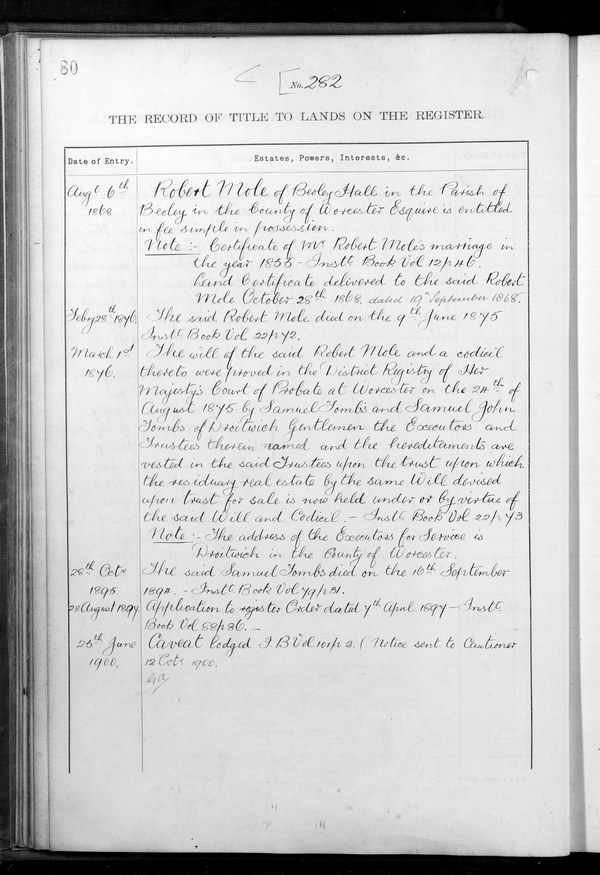 80
[No. 282
THE RECORD OF TITLE TO LANDS ON THE REGISTER.
Date of Entry.
Estates, Powers, Interests, &c.
Augt 6th 1868
Robert Mole of Beoley Hall in the Parish of
Beoley in the County of Worcester Esquire is entitled
in fee simple in possession.
Note :- Certificate of Mr. Robert Mole's marriage in
the year 1855 - Instt. Book Vol 12 p 46.
Land Certificate delivered to the said Robert
Mole October 28th 1868. dated 19th September 1868.
Feby 28th 1876.
The said Robert Mole died on the 9th June 1875
Instt. Book Vol 22 p 72.
March 1st
The will of the said Robert Mole and a codicil
1876.
thereto were proved in the District Registry of Her
Majesty's Court of Probate at Worcester on the 24th of
August 1875 by Samuel Tombs and Samuel John
Tombs of Droitwich Gentlemen the Executors and
Trustees therein named and the hereditaments are
vested in the said Trustees upon the trust upon which
the residuary real estate by the same Will devised
upon trust for sale is now held under or by virtue of
the said Will and Codicil. - Instt. Book Vol 22 p 73
Note :- The address of the Executors for Service is
Droitwich in the County of Worcester.
26th Octr
The said Samuel Tombs died on the 16th September
1895
1894. - Instt. Book Vol 79 p 51.
28 August 1897
Application to register Order dated 7th April 1897 - Instt.
Book Vol 88 p 86. -
25th June
Caveat lodged I.B Vol 101 p 2. (Notice sent to Cautioner
1900.
12 Octr 1900.